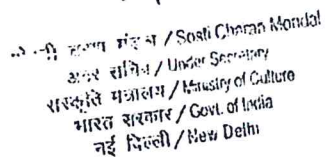 मंडल / Sosti Charan Mondal
अवर सचिव / Under Secretary
संस्कृति मंत्रालय / Ministry of Culture
भारत सरकार / Govt. of India
नई दिल्ली / New Delhi